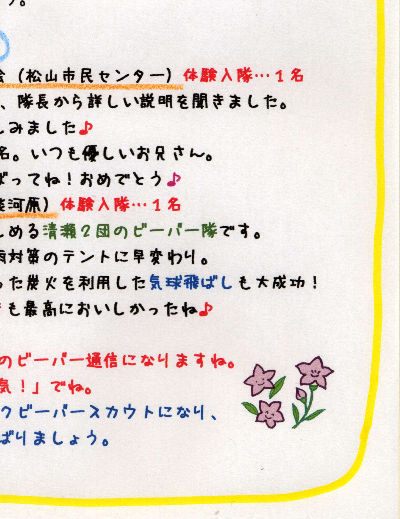 う。
会（松山市民センター）体験入隊…１名
、隊長から詳しい説明を聞きました。
しみました♪
名。いつも優しいお兄さん。
ばってね！おめでとう♪
河原）体験入隊…１名
しめる清瀬２団のビーバー隊です。
雨対策のテントに早変わり。
った炭火を利用した気球飛ばしも大成功！
も最高においしかったね♪
のビーバー通信になりますね。
気！」でね。
クビーバースカウトになり、
ばりましょう。